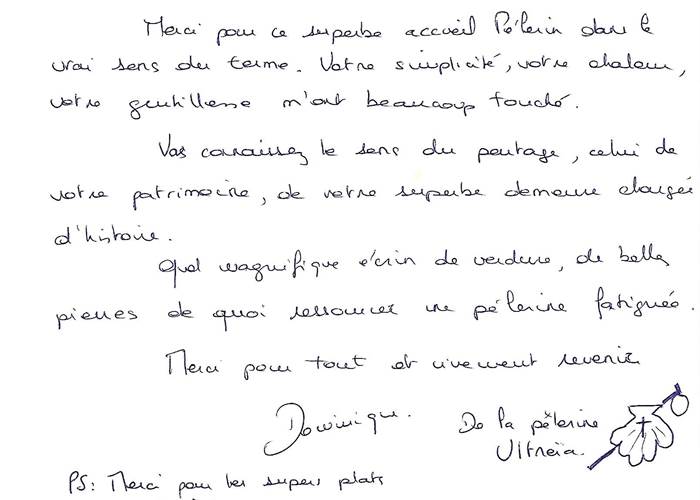 Merci pour ce superbe accueil Pélerin dans le
vrai sens du terme. Votre simplicité, votre chaleur,
votre gentillesse m'ont beaucoup touché.
Vous connaissez le sens du partage, celui de
votre patrimoine, de votre superbe demeure chargée
d'histoire.
Quel magnifique écrin de verdure, de belles
pierres de quoi ressourcer une pélerine fatiguée.
Merci pour tout et vivement revenir
Dominique. De la pélerine
Ultreïa.
PS: Merci pour les supers plats